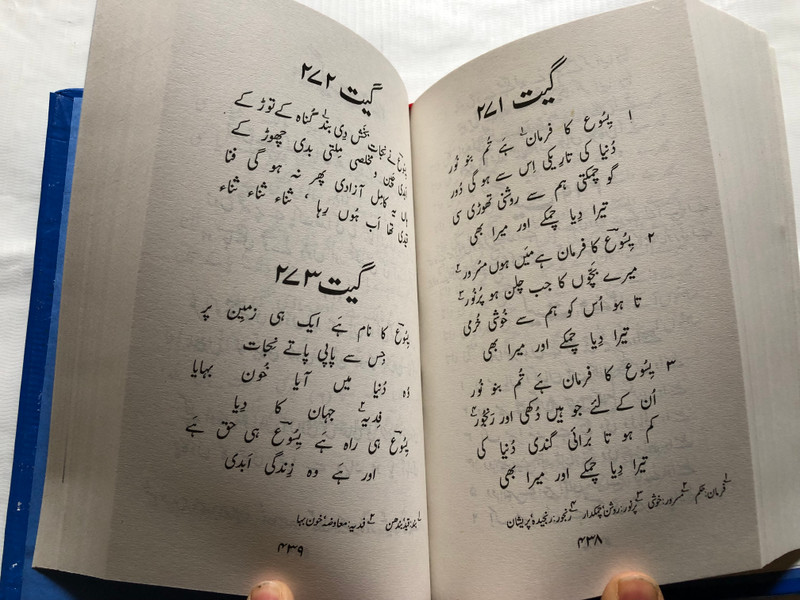 گیت ۲۷۱
۱ یسُوع کا فرمان ہَے تُم بنو نُور
دُنیا کی تاریکی اِس سے ہو گی دُور
گو چمکتی ہم سے روشنی تھوڑی سی
تیرا دِیا چمکے اور میرا بھی
۲ یِسُوع کا فرمان ہے میَں ہوں مسرُور
میرے بچّوں کا جب چلن ہو پُرنُور
تا ہو اُس کو ہم سے خُوشی خُرمی
تیرا دِیا چمکے اور میرا بھی
۳ یِسُوع کا فرمان ہَے تُم بنو نُور
اُن کے لئے جو ہیں دُکھی اور رنجُور
کم ہو تا بُرائی گندی دُنیا کی
تیرا دِیا چمکے اور میرا بھی
۱ فرمان: حکم ۲ مسرور: خوشی ۳ پُرنُور: روشن چمکدار ۴ رنجور: رنجیدہ پریشان
۴۳۸
گیت ۲۷۲
نے نجات بخش دِی بند گُناہ کے توڑ کے
و مخلصی مِلتی بدی چھوڑ کے
کامِل آزادی پھر نہ ہو گی فنا
تھا اَب ہُوں رِہا، ثناء ثناء ثناء
گیت ۲۷۳
یِسُوع کا نام ہَے ایک ہی زمِین پر
جِس سے پاپی پاتے نجات
وُہ دُنیا میں آیا خُون بہایا
فِدیہ جہان کا دِیا
یِسُوع ہی راہ ہَے یِسُوع ہی حق ہَے
اور ہَے وہ زِندگی اَبدی
۱ بند: قید بندھن ۲ فدیہ: معاوضہ خون بہا
۴۳۹